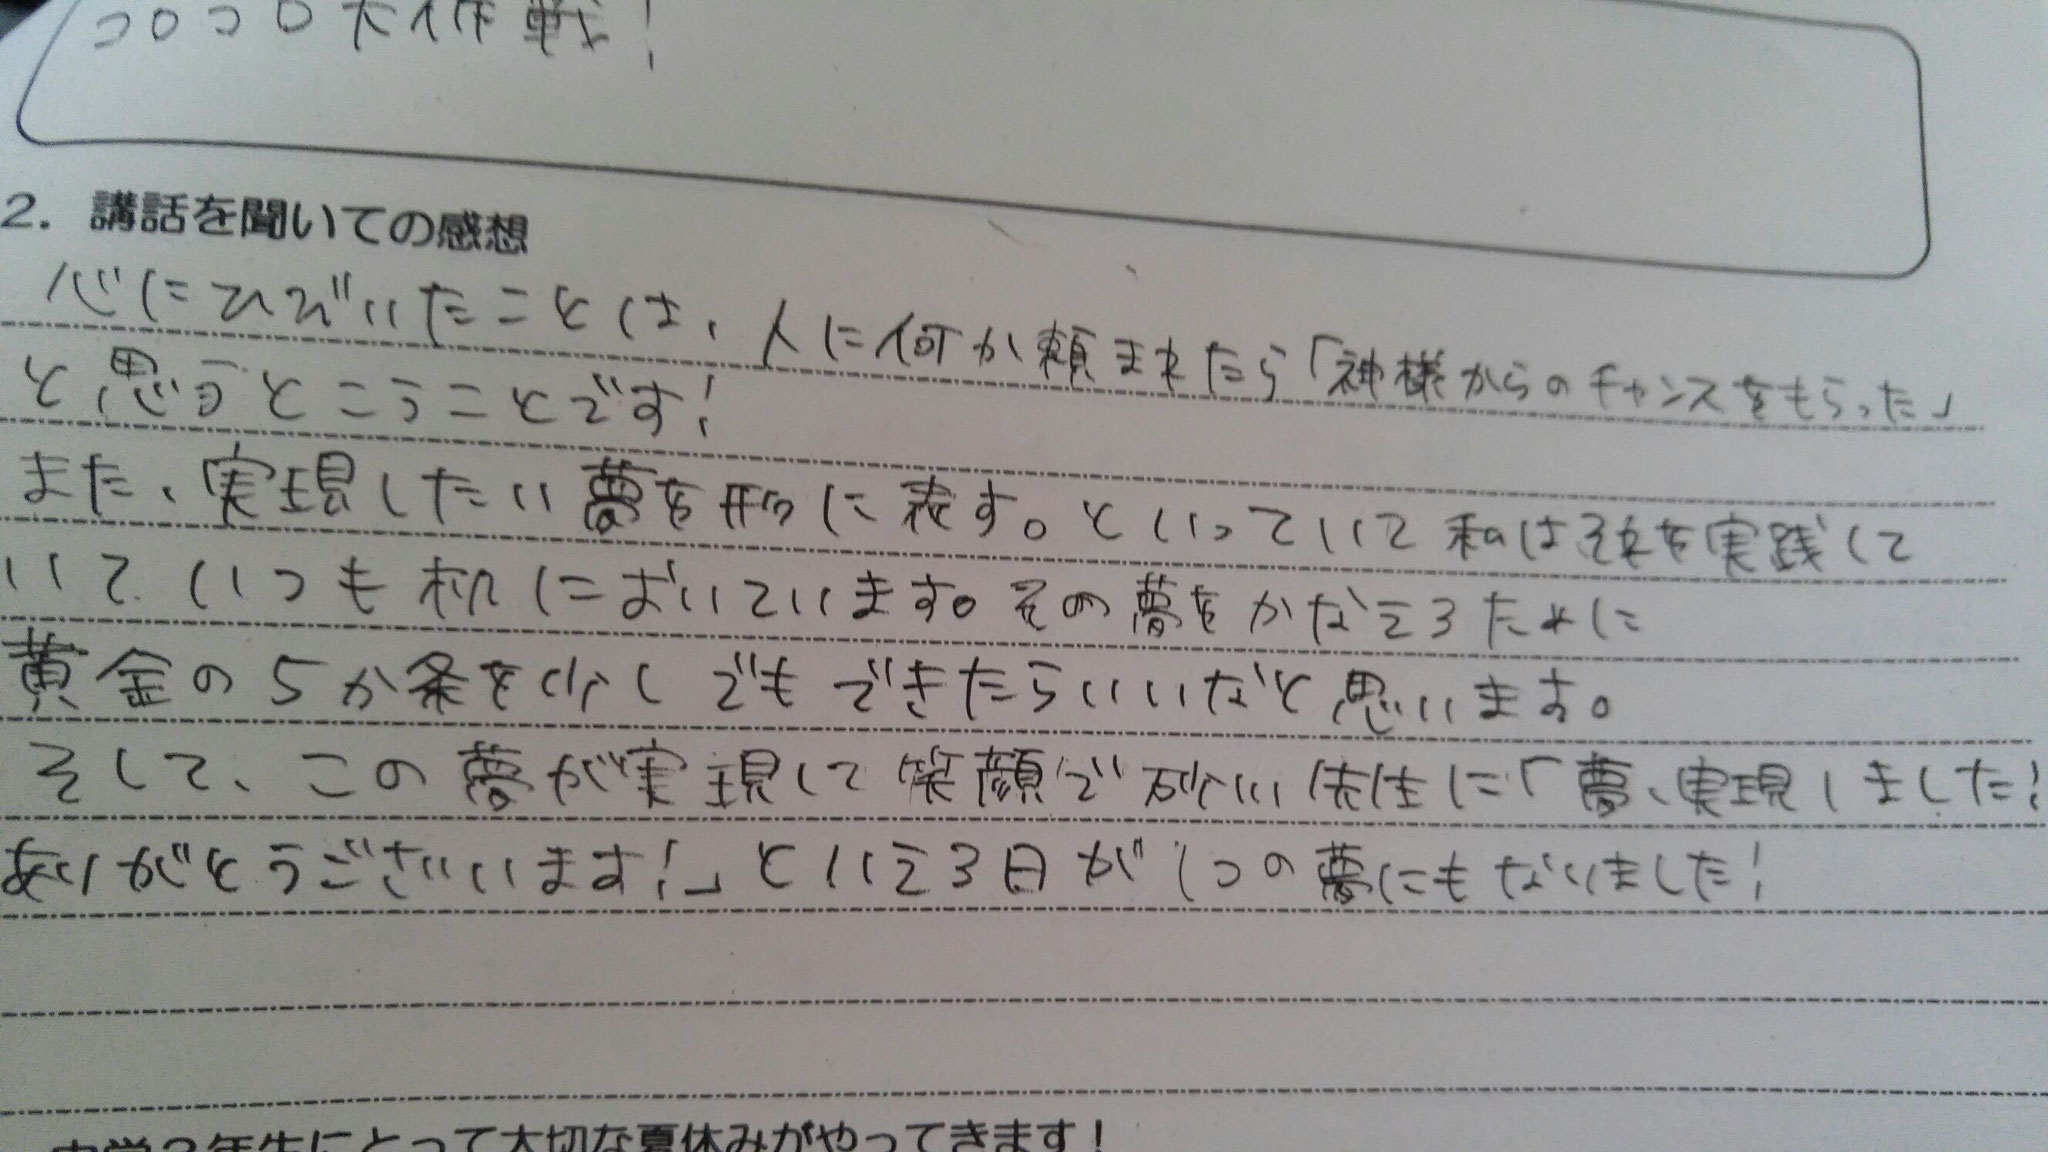 コロコロ大作戦！
2. 講話を聞いての感想
心にひびいたことは、人に何か頼まれたら「神様からのチャンスをもらった」
と思うとこうことです！
また、実現したい夢を形に表す。といっていて私はそれを実践して
いていつも机においています。その夢をかなえるために
黄金の5か条を少しでもできたらいいなと思います。
そして、この夢が実現して笑顔で 先生に「夢、実現しました！
ありがとうございます！」といえる日が1つの夢にもなりました！
中学3年生にとって大切な夏休みがやってきます！